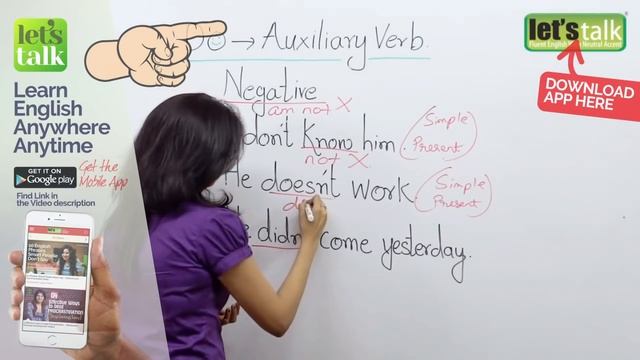 let's
talk
Learn
English
Anywhere
Anytime
GET IT ON
Google play
Get the
Mobile App
Find Link in
the Video description
let's talk
DOWNLOAD
APP HERE
→ Auxiliary Verb.
Negative
am not X
don't Know him. (Simple
Present)
not X
He doesn't work. (Simple
Present)
didn come yesterday.